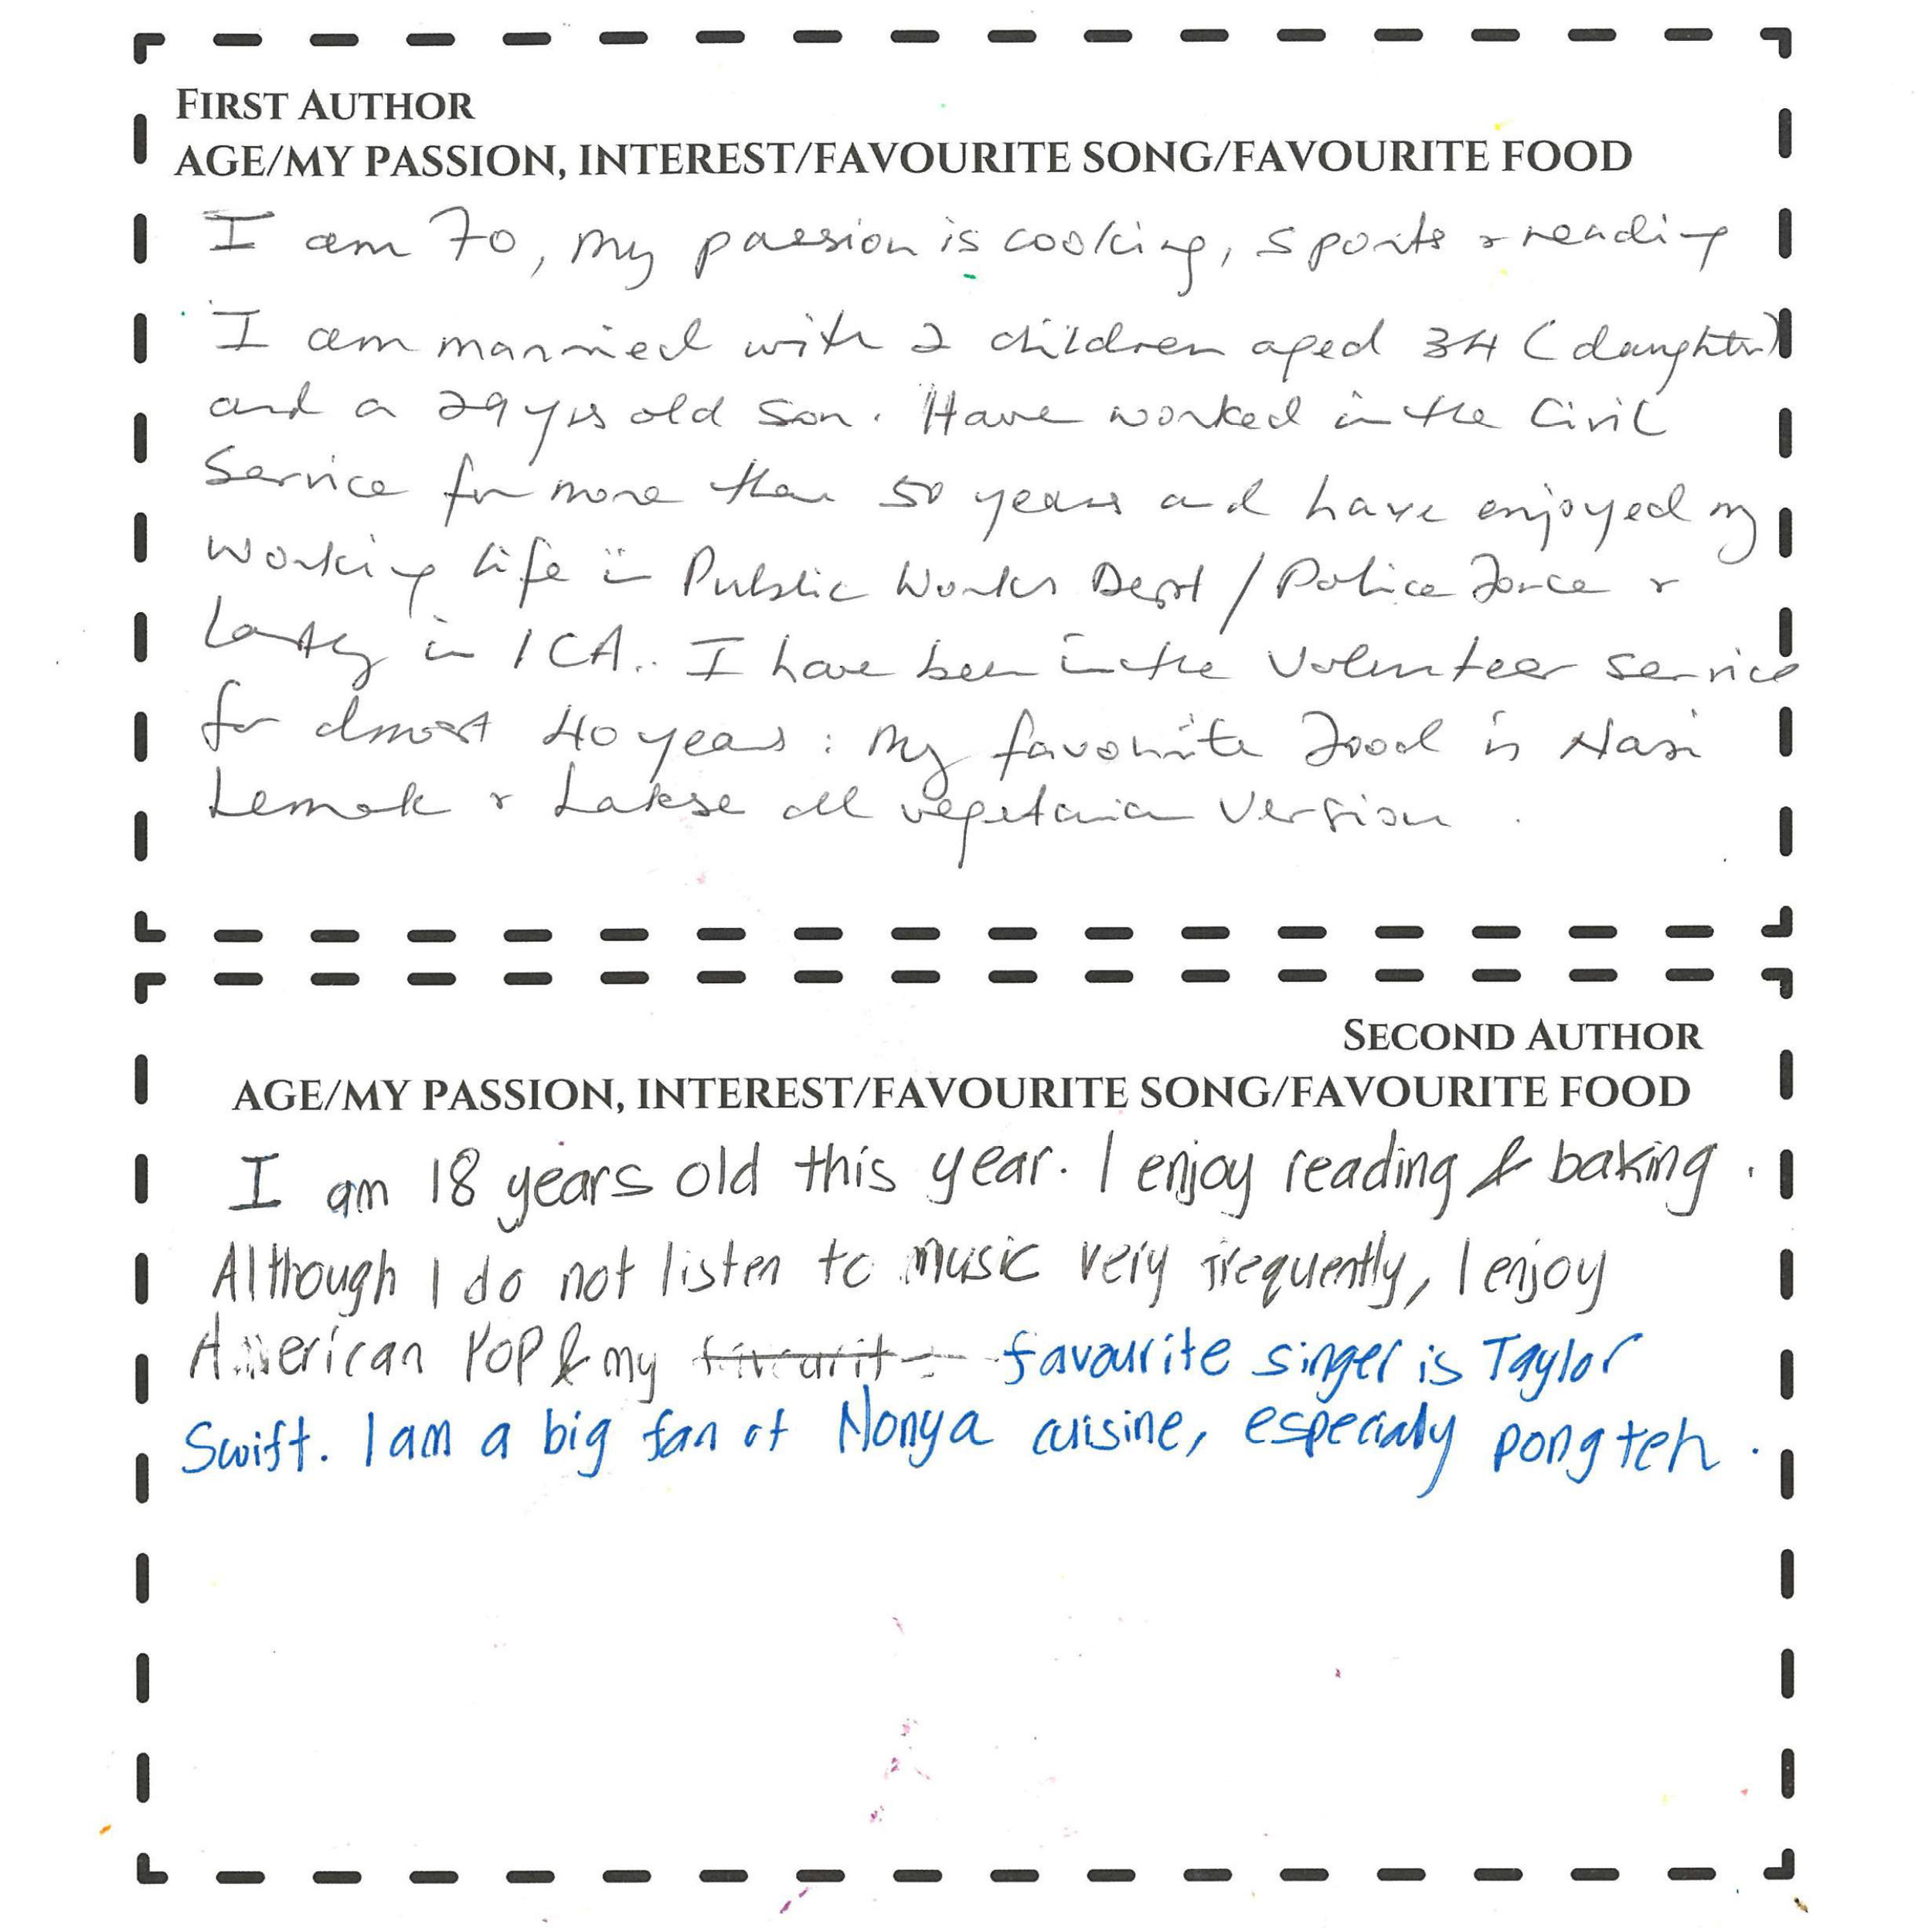 FIRST AUTHOR
AGE/MY PASSION, INTEREST/FAVOURITE SONG/FAVOURITE FOOD
I am 70, my passion is cooking, sports & reading
I am married with 2 children aged 34 (daughter)
and a 29 yrs old son. Have worked in the Civil
Service for more than 50 years and have enjoyed my
working life in Public Works Dept / Police Force &
lastly in ICA.. I have been in the Volunteer service
for almost 40 years. My favourite food is Nasi
Lemak & Lakse all vegetarian version.
SECOND AUTHOR
AGE/MY PASSION, INTEREST/FAVOURITE SONG/FAVOURITE FOOD
I am 18 years old this year. I enjoy reading & baking.
Although I do not listen to music very frequently, I enjoy
American Pop & my favourite singer is Taylor
Swift. I am a big fan of Nonya cuisine, especially pongteh.